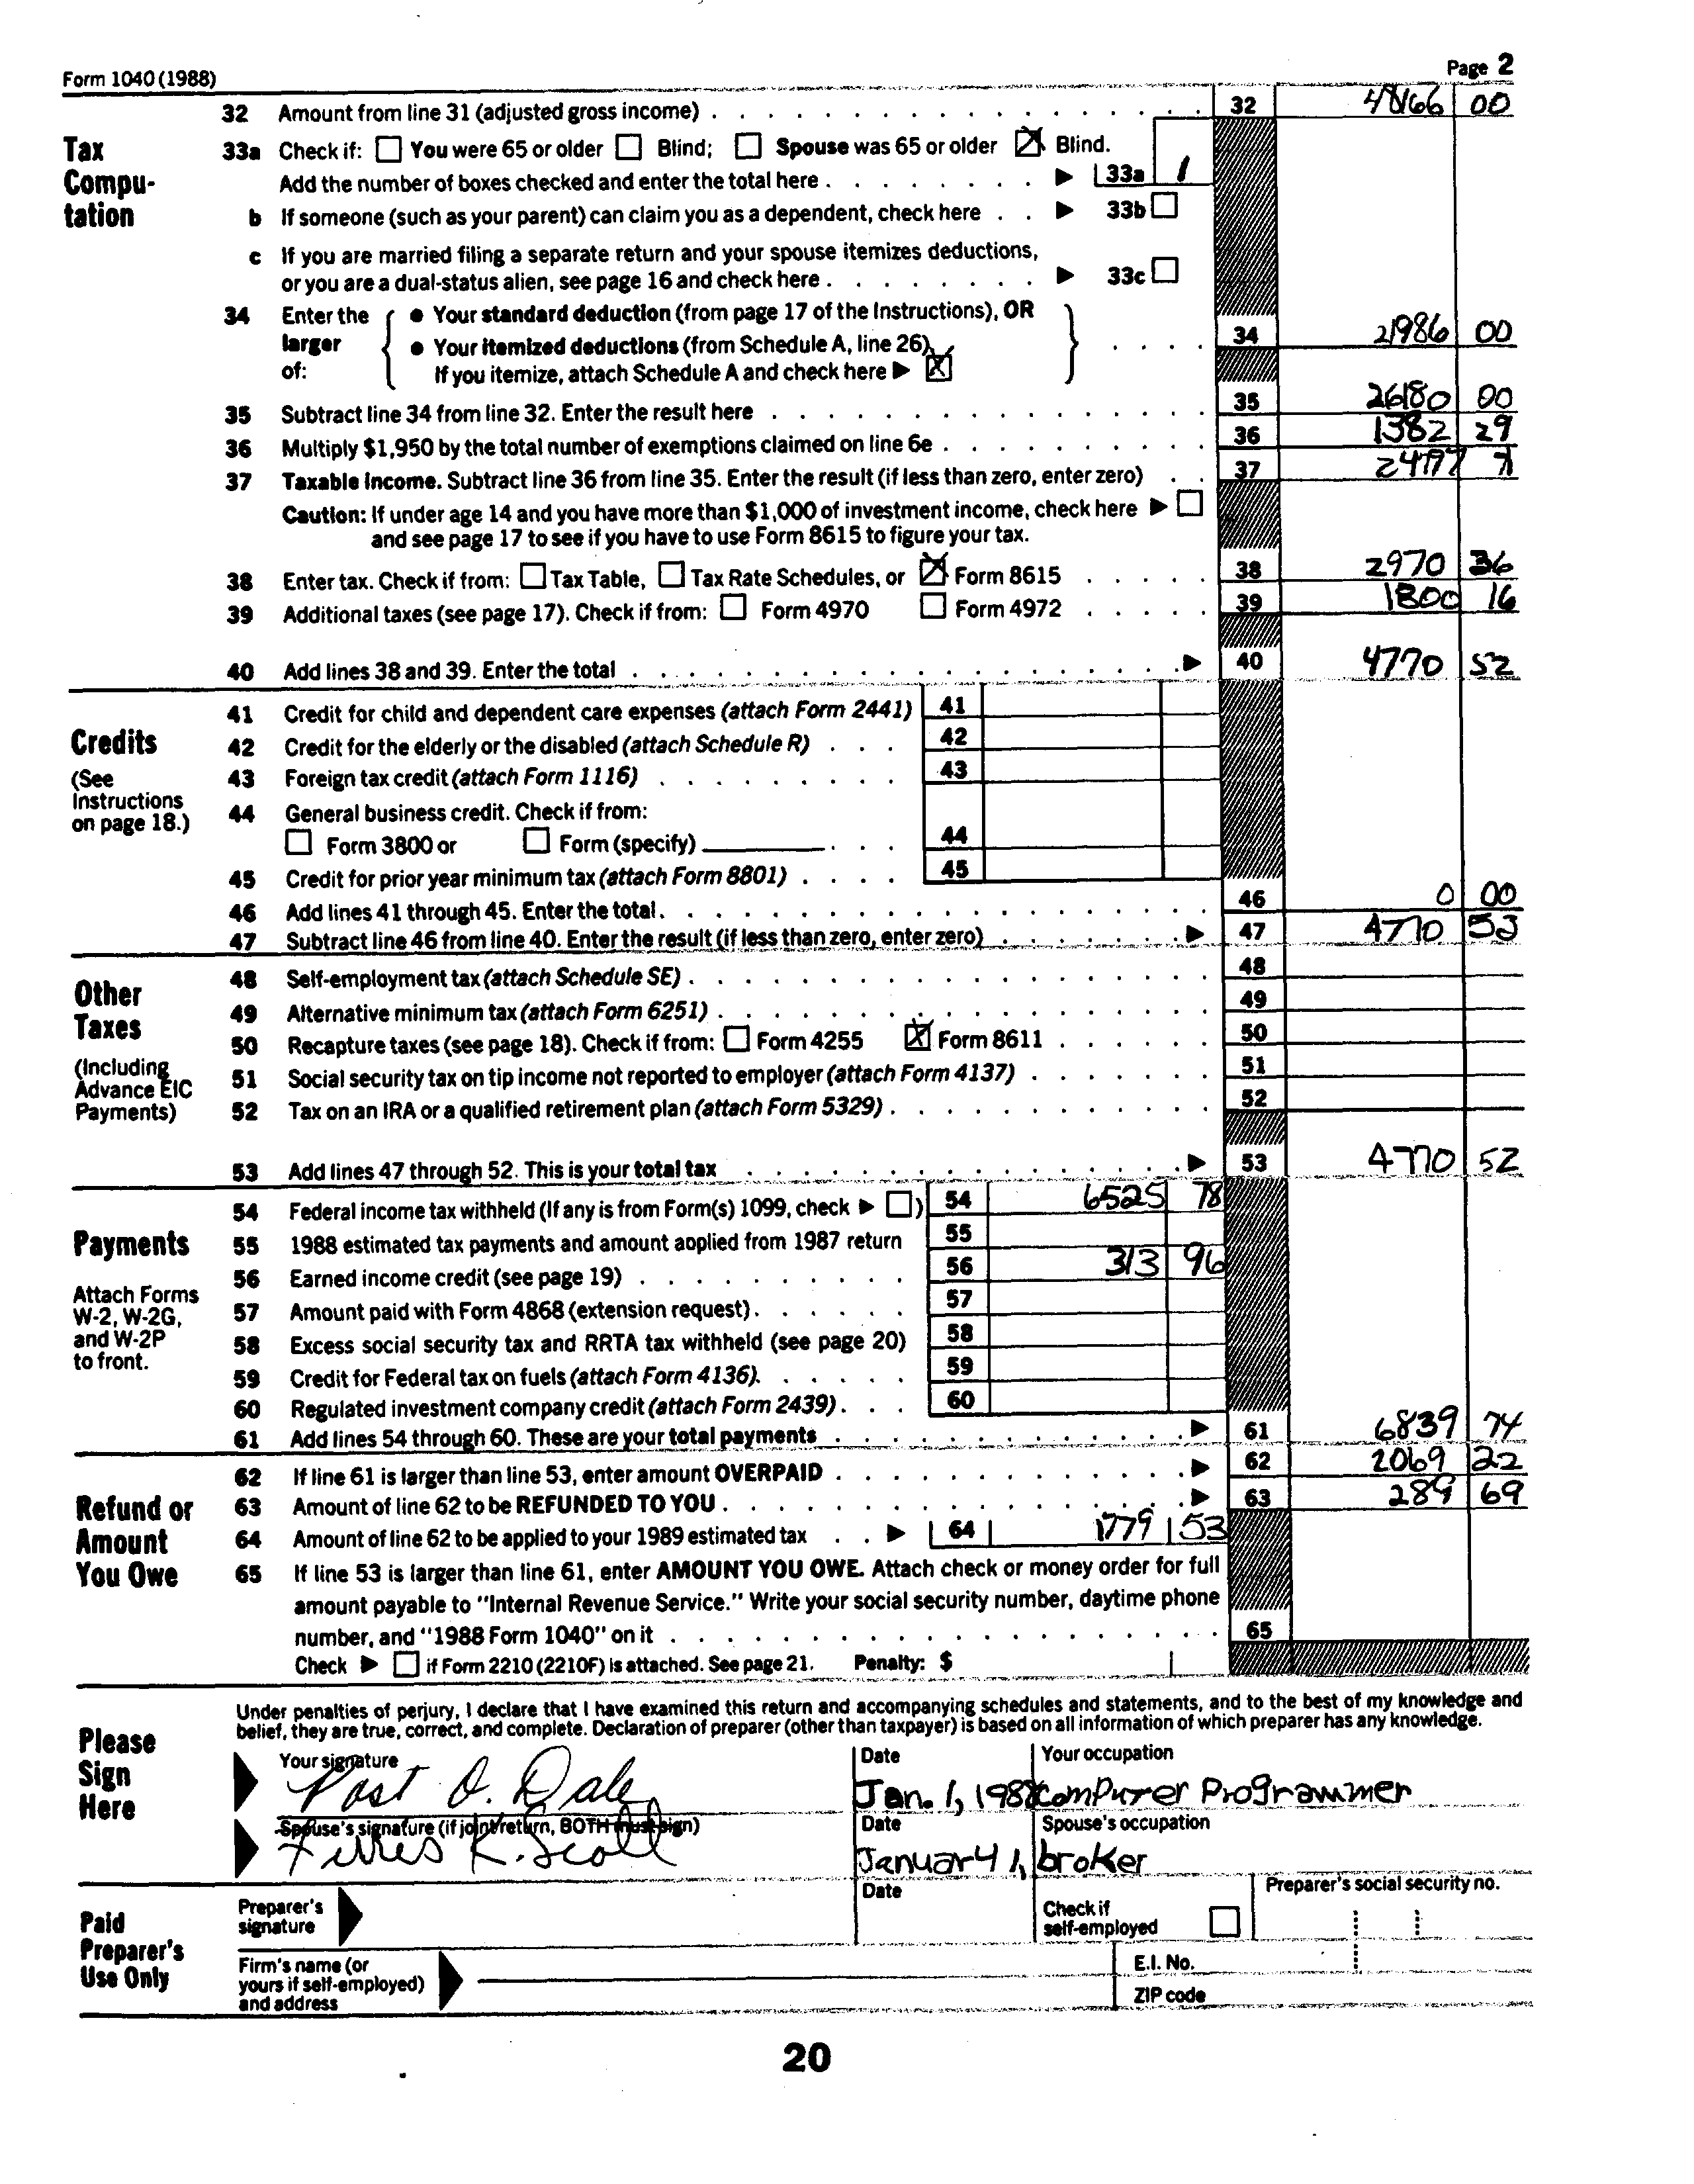 Form 1040 (1988) Page 2
32 Amount from line 31 (adjusted gross income) 32 48166 00
Tax Compu-tation
33a Check if: You were 65 or older Blind; Spouse was 65 or older Blind.
Add the number of boxes checked and enter the total here 33a 1
b If someone (such as your parent) can claim you as a dependent, check here 33b
c If you are married filing a separate return and your spouse itemizes deductions,
or you are a dual-status alien, see page 16 and check here 33c
34 Enter the larger of:
• Your standard deduction (from page 17 of the Instructions), OR
• Your itemized deductions (from Schedule A, line 26)
If you itemize, attach Schedule A and check here
34 21986 00
35 Subtract line 34 from line 32. Enter the result here 35 26180 00
36 Multiply $1,950 by the total number of exemptions claimed on line 6e 36 1382 29
37 Taxable income. Subtract line 36 from line 35. Enter the result (if less than zero, enter zero) 37 24797 71
Caution: If under age 14 and you have more than $1,000 of investment income, check here
and see page 17 to see if you have to use Form 8615 to figure your tax.
38 Enter tax. Check if from: Tax Table, Tax Rate Schedules, or Form 8615 38 2970 36
39 Additional taxes (see page 17). Check if from: Form 4970 Form 4972 39 1800 16
40 Add lines 38 and 39. Enter the total 40 4770 52
Credits
(See Instructions on page 18.)
41 Credit for child and dependent care expenses (attach Form 2441) 41
42 Credit for the elderly or the disabled (attach Schedule R) 42
43 Foreign tax credit (attach Form 1116) 43
44 General business credit. Check if from:
Form 3800 or Form (specify) 44
45 Credit for prior year minimum tax (attach Form 8801) 45
46 Add lines 41 through 45. Enter the total 46 0 00
47 Subtract line 46 from line 40. Enter the result (if less than zero, enter zero) 47 4770 52
Other Taxes
(Including Advance EIC Payments)
48 Self-employment tax (attach Schedule SE) 48
49 Alternative minimum tax (attach Form 6251) 49
50 Recapture taxes (see page 18). Check if from: Form 4255 Form 8611 50
51 Social security tax on tip income not reported to employer (attach Form 4137) 51
52 Tax on an IRA or a qualified retirement plan (attach Form 5329) 52
53 Add lines 47 through 52. This is your total tax 53 4770 52
Payments
Attach Forms W-2, W-2G, and W-2P to front.
54 Federal income tax withheld (If any is from Form(s) 1099, check ) 54 6525 78
55 1988 estimated tax payments and amount applied from 1987 return 55
56 Earned income credit (see page 19) 56 313 96
57 Amount paid with Form 4868 (extension request) 57
58 Excess social security tax and RRTA tax withheld (see page 20) 58
59 Credit for Federal tax on fuels (attach Form 4136) 59
60 Regulated investment company credit (attach Form 2439) 60
61 Add lines 54 through 60. These are your total payments 61 6839 74
Refund or Amount You Owe
62 If line 61 is larger than line 53, enter amount OVERPAID 62 2069 22
63 Amount of line 62 to be REFUNDED TO YOU 63 289 69
64 Amount of line 62 to be applied to your 1989 estimated tax 64 1779 53
65 If line 53 is larger than line 61, enter AMOUNT YOU OWE. Attach check or money order for full
amount payable to "Internal Revenue Service." Write your social security number, daytime phone
number, and "1988 Form 1040" on it 65
Check if Form 2210 (2210F) is attached. See page 21. Penalty: $
Please Sign Here
Under penalties of perjury, I declare that I have examined this return and accompanying schedules and statements, and to the best of my knowledge and
belief, they are true, correct, and complete. Declaration of preparer (other than taxpayer) is based on all information of which preparer has any knowledge.
Your signature Date Your occupation
Post O. Dale Jan. 1, 1988 computer Programmer
Spouse's signature (if joint return, BOTH must sign) Date Spouse's occupation
K. Scott January 1, broker
Paid Preparer's Use Only
Preparer's signature Date Check if self-employed Preparer's social security no.
Firm's name (or yours if self-employed) and address E.I. No.
ZIP code
20